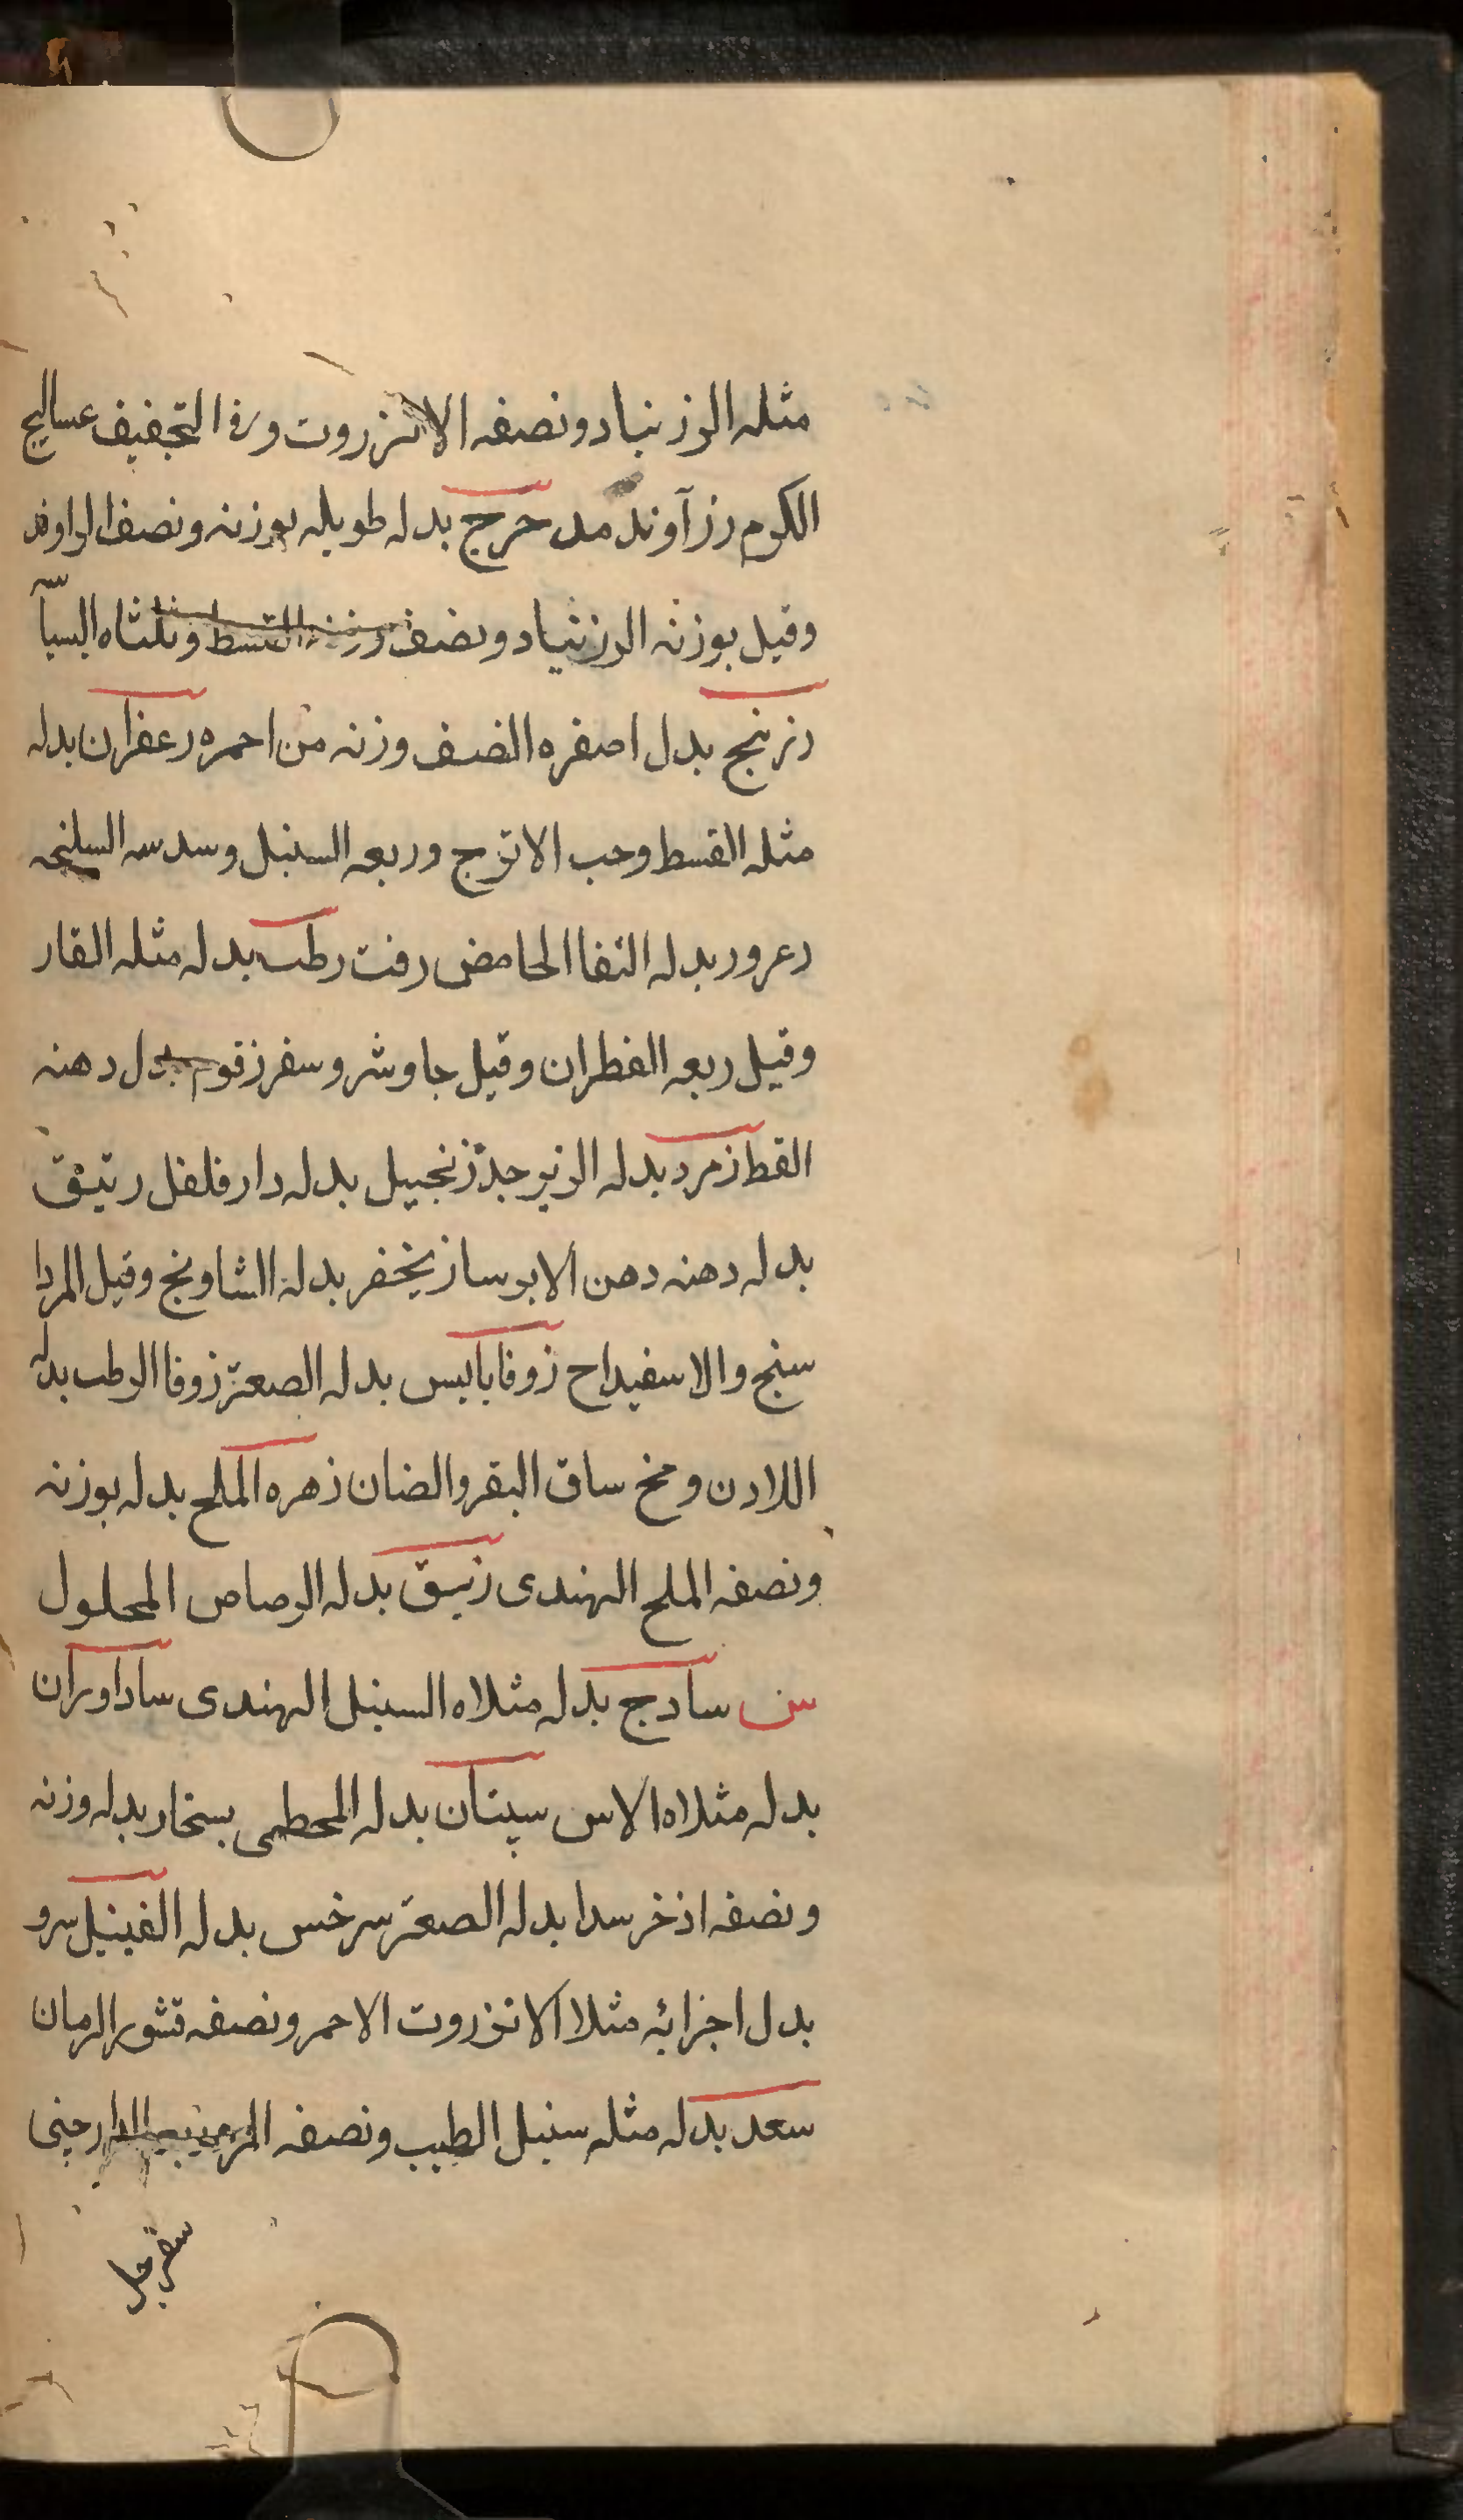 مثله الرزنباد ونصفه الانزروت وفى التجفيف عساليج
الكرم رزآوند مدحرج بدله طويله بوزنه ونصف الراوند
وقيل بوزنه الرزنباد ونصف وزنه القسط وثلثاه البسبا
زرنيج بدل اصفره الضف وزنه من احمره زعفران بدله
مثله القسط وحب الاترج وربعه السنبل وسدسه السليخه
زعرور بدله التفا الحامض زفت رطب بدله مثله القار
وقيل ربعه القطران وقيل جاوشر وسفر زقوم بدل دهنه
القط زمرد بدله الزبرجد زنجبيل بدله دارفلفل رتيق
بدله دهنه دهن الايرسا زنجفر بدله الشاونج وقيل المردا
سنج والاسفيداج زوفا يابس بدله الصعتر زوفا الرطب بدله
اللادن ومخ ساق البقر والضان زهره الملح بدله بوزنه
ونصفه الملح الهندى زيبق بدله الرصاص المحلول
س سادج بدله مثلاه السنبل الهندى ساداوران
بدله مثلاه الاس سپستان بدله الخطمى بسخار بدله وزنه
ونصفه اذخر سدا بدله الصعتر سرخس بدله القنبيل سرو
بدل اجزائه مثلا الانزروت الاحمر ونصفه قشور الرمان
سعد بدله مثله سنبل الطيب ونصفه المر الدارچينى
سفرجل